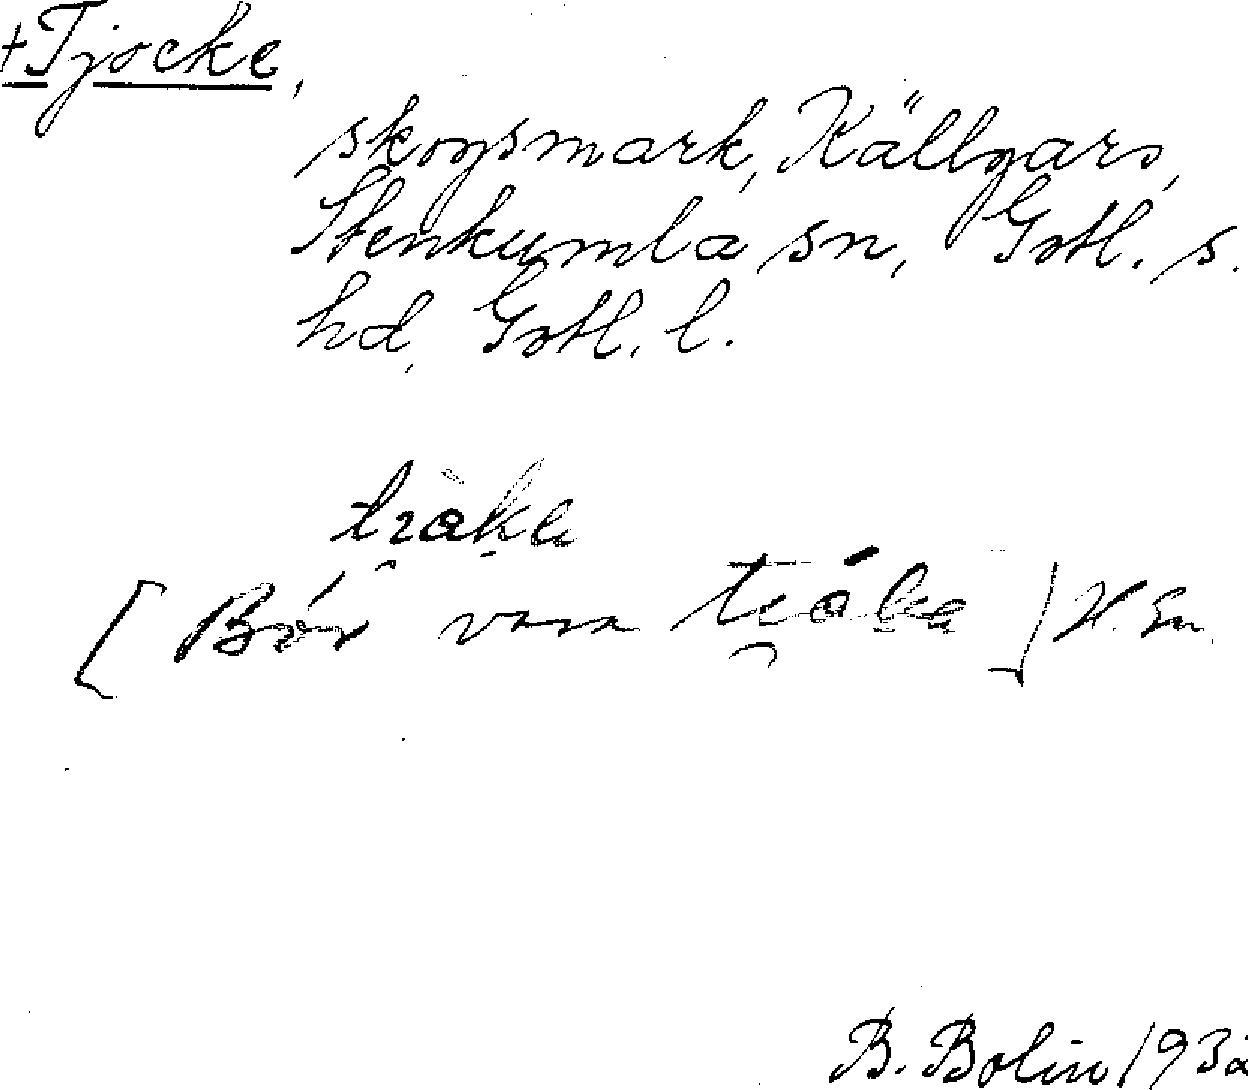 +Tjocke,
skogsmark, Källgars,
Stenkumla sn, Gotl. s.
hd, Gotl. l.
[Bör vara ] H. Gn.
B. Bolin 1932